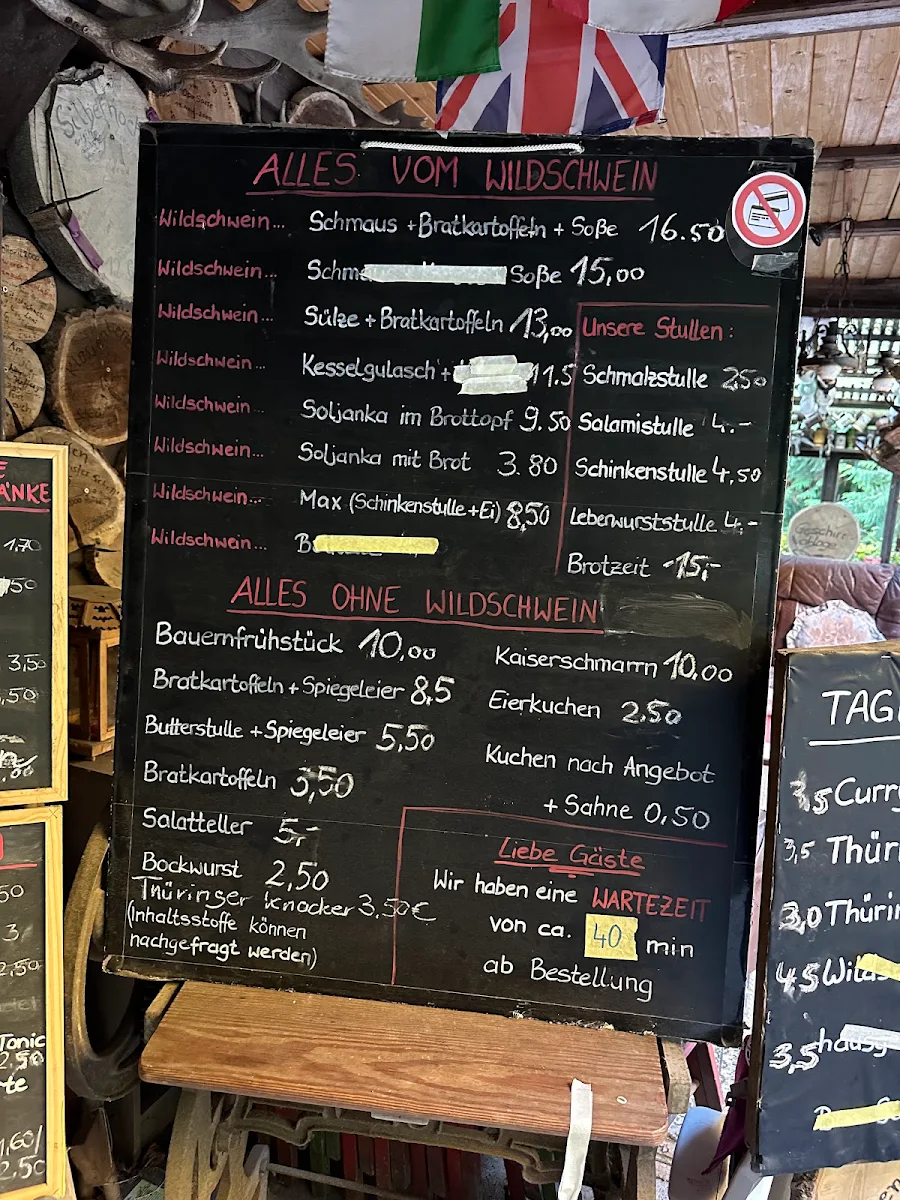 ALLES VOM WILDSCHWEIN
Wildschwein... Schmaus + Bratkartoffeln + Soße 16.50
Wildschwein... Schm Soße 15,00
Wildschwein... Sülze + Bratkartoffeln 13,00
Wildschwein... Kesselgulasch + 11.5
Wildschwein... Soljanka im Brottopf 9.50
Wildschwein... Soljanka mit Brot 3.80
Wildschwein... Max (Schinkenstulle + Ei) 8,50
Wildschwein... B
Unsere Stullen:
Schmalzstulle 2,50
Salamistulle 4.-
Schinkenstulle 4,50
Leberwurststulle 4.-
Brotzeit 15,-
ALLES OHNE WILDSCHWEIN
Bauernfrühstück 10,00
Bratkartoffeln + Spiegeleier 8,5
Butterstulle + Spiegeleier 5,50
Bratkartoffeln 3,50
Salatteller 5,-
Bockwurst 2,50
Thüringer Knacker 3,50€
(Inhaltsstoffe können
nachgefragt werden)
Kaiserschmarrn 10.00
Eierkuchen 2.50
Kuchen nach Angebot
+ Sahne 0,50
Liebe Gäste
Wir haben eine WARTEZEIT
von ca. 40 min
ab Bestellung
ÄNKE
1,70
50
3,50
,50
50
3,
2,50
Tonic
2.50
te
1,60/
2,50
Geschirr
TAG
3,5 Curry
3,5 Thür
3,0 Thürin
4,5 Wild
3,5 hausg